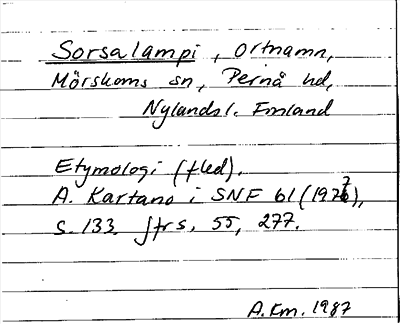 Sorsalampi, Ortnamn,
Mörskoms sn, Pernå hd,
Nylands l. Finland
Etymologi (fled).
A. Kartano i SNF 61 (1977),
s. 133. Jfr s. 55, 277.
A.Km. 1987